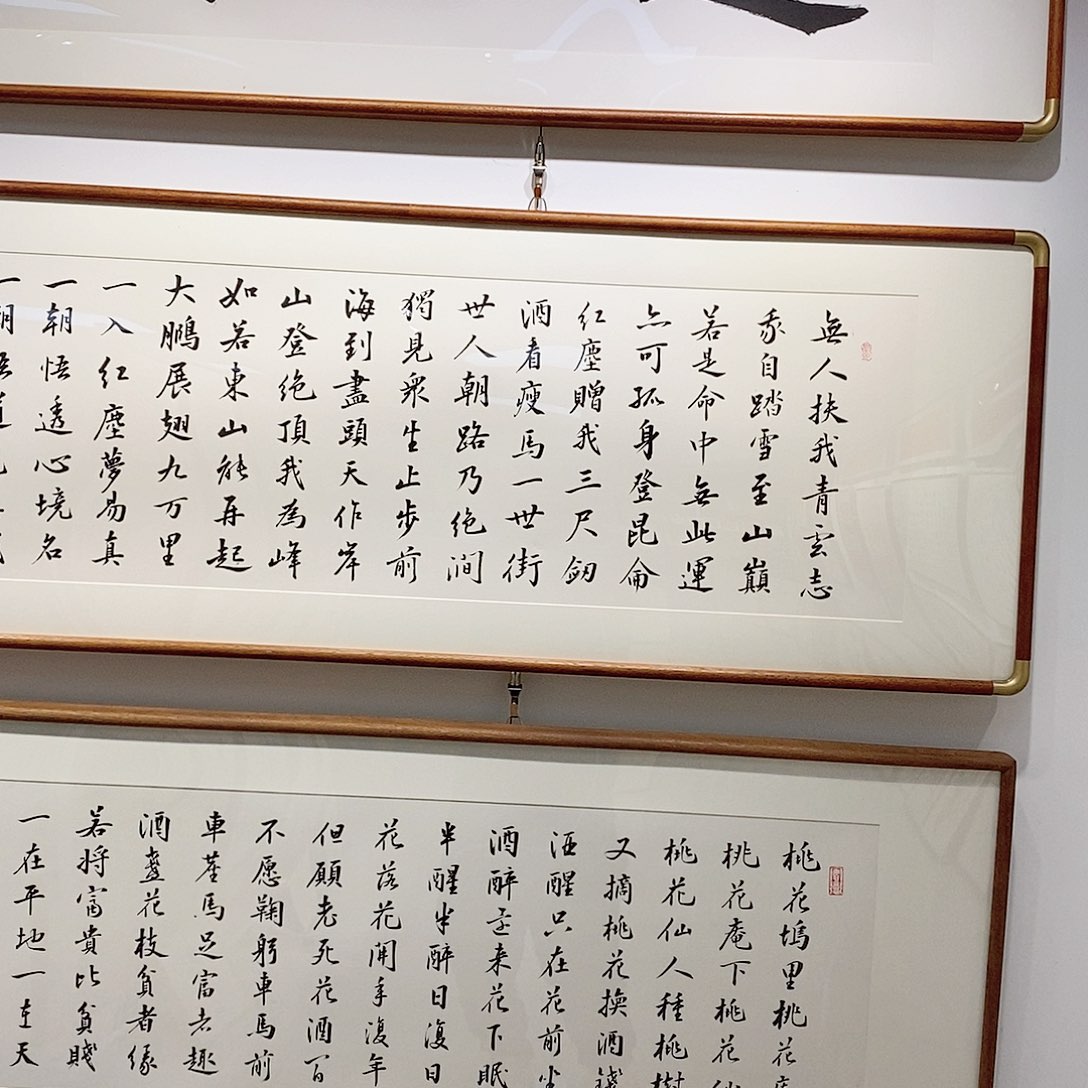 無人扶我青雲志
我自踏雪至山巔
若是命中無此運
亦可孤身登昆侖
紅塵贈我三尺劒
酒看瘦馬一世街
世人朝路乃絶澗
獨見衆生止步前
海到盡頭天作岸
山登絶頂我為峰
如若東山能再起
大鵬展翅九万里
一入紅塵夢易真
一朝悟透心境名
一朝悟道
桃花塢里桃花
桃花庵下桃花
桃花仙人種桃樹
又摘桃花換酒錢
酒醒只在花前坐
酒醉還来花下眠
半醒半醉日復日
花落花開年復年
但願老死花酒
不愿鞠躬車馬前
車塵馬足富者趣
酒盞花枝貧者緣
若将富貴比貧賤
一在平地一在天